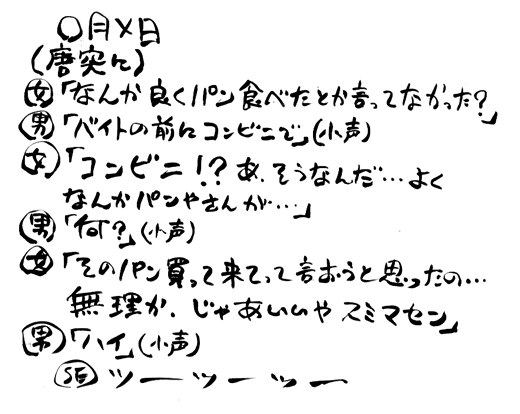 〇月×日
(唐突に)
女「なんか良くパン食べたとか言ってなかった?」
男「バイトの前にコンビニで」(小声)
女「コンビニ!?あ、そうなんだ…よく
なんかパンやさんが…」
男「何?」(小声)
女「そのパン買って来てって言おうと思ったの…
無理か、じゃあいいやスミマセン」
男「ハイ」(小声)
SE ツーツーツー